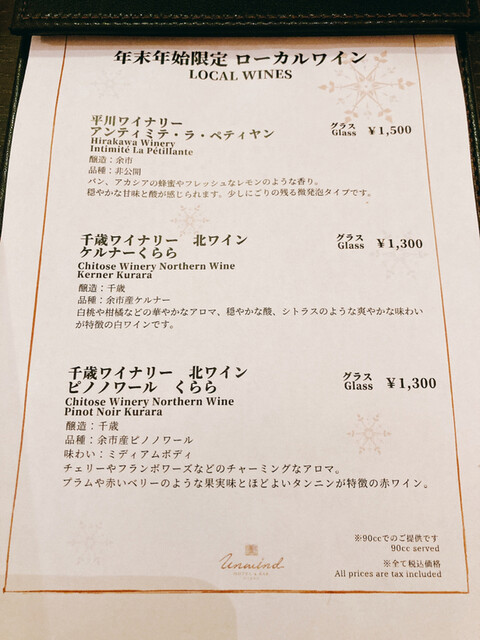 年末年始限定 ローカルワイン
LOCAL WINES
平川ワイナリー
アンティミテ・ラ・ペティヤン
グラス
Glass ￥1,500
Hirakawa Winery
Intimité La Pétillante
醸造：余市
品種：非公開
パン、アカシアの蜂蜜やフレッシュなレモンのような香り。
穏やかな甘味と酸が感じられます、少しにごりの残る微発泡タイプです。
千歳ワイナリー 北ワイン
ケルナーくらら
グラス
Glass ￥1,300
Chitose Winery Northern Wine
Kerner Kurara
醸造：千歳
品種：余市産ケルナー
白桃や柑橘などの華やかなアロマ、穏やかな酸、シトラスのような爽やかな味わい
が特徴の白ワインです。
千歳ワイナリー 北ワイン
ピノノワール くらら
グラス
Glass ￥1,300
Chitose Winery Northern Wine
Pinot Noir Kurara
醸造：千歳
品種：余市産ピノノワール
味わい：ミディアムボディ
チェリーやフランボワーズなどのチャーミングなアロマ。
プラムや赤いベリーのような果実味とほどよいタンニンが特徴の赤ワイン。
Unwind
HOTEL & BAR
※90ccでのご提供です
90cc served
※全て税込価格
All prices are tax included